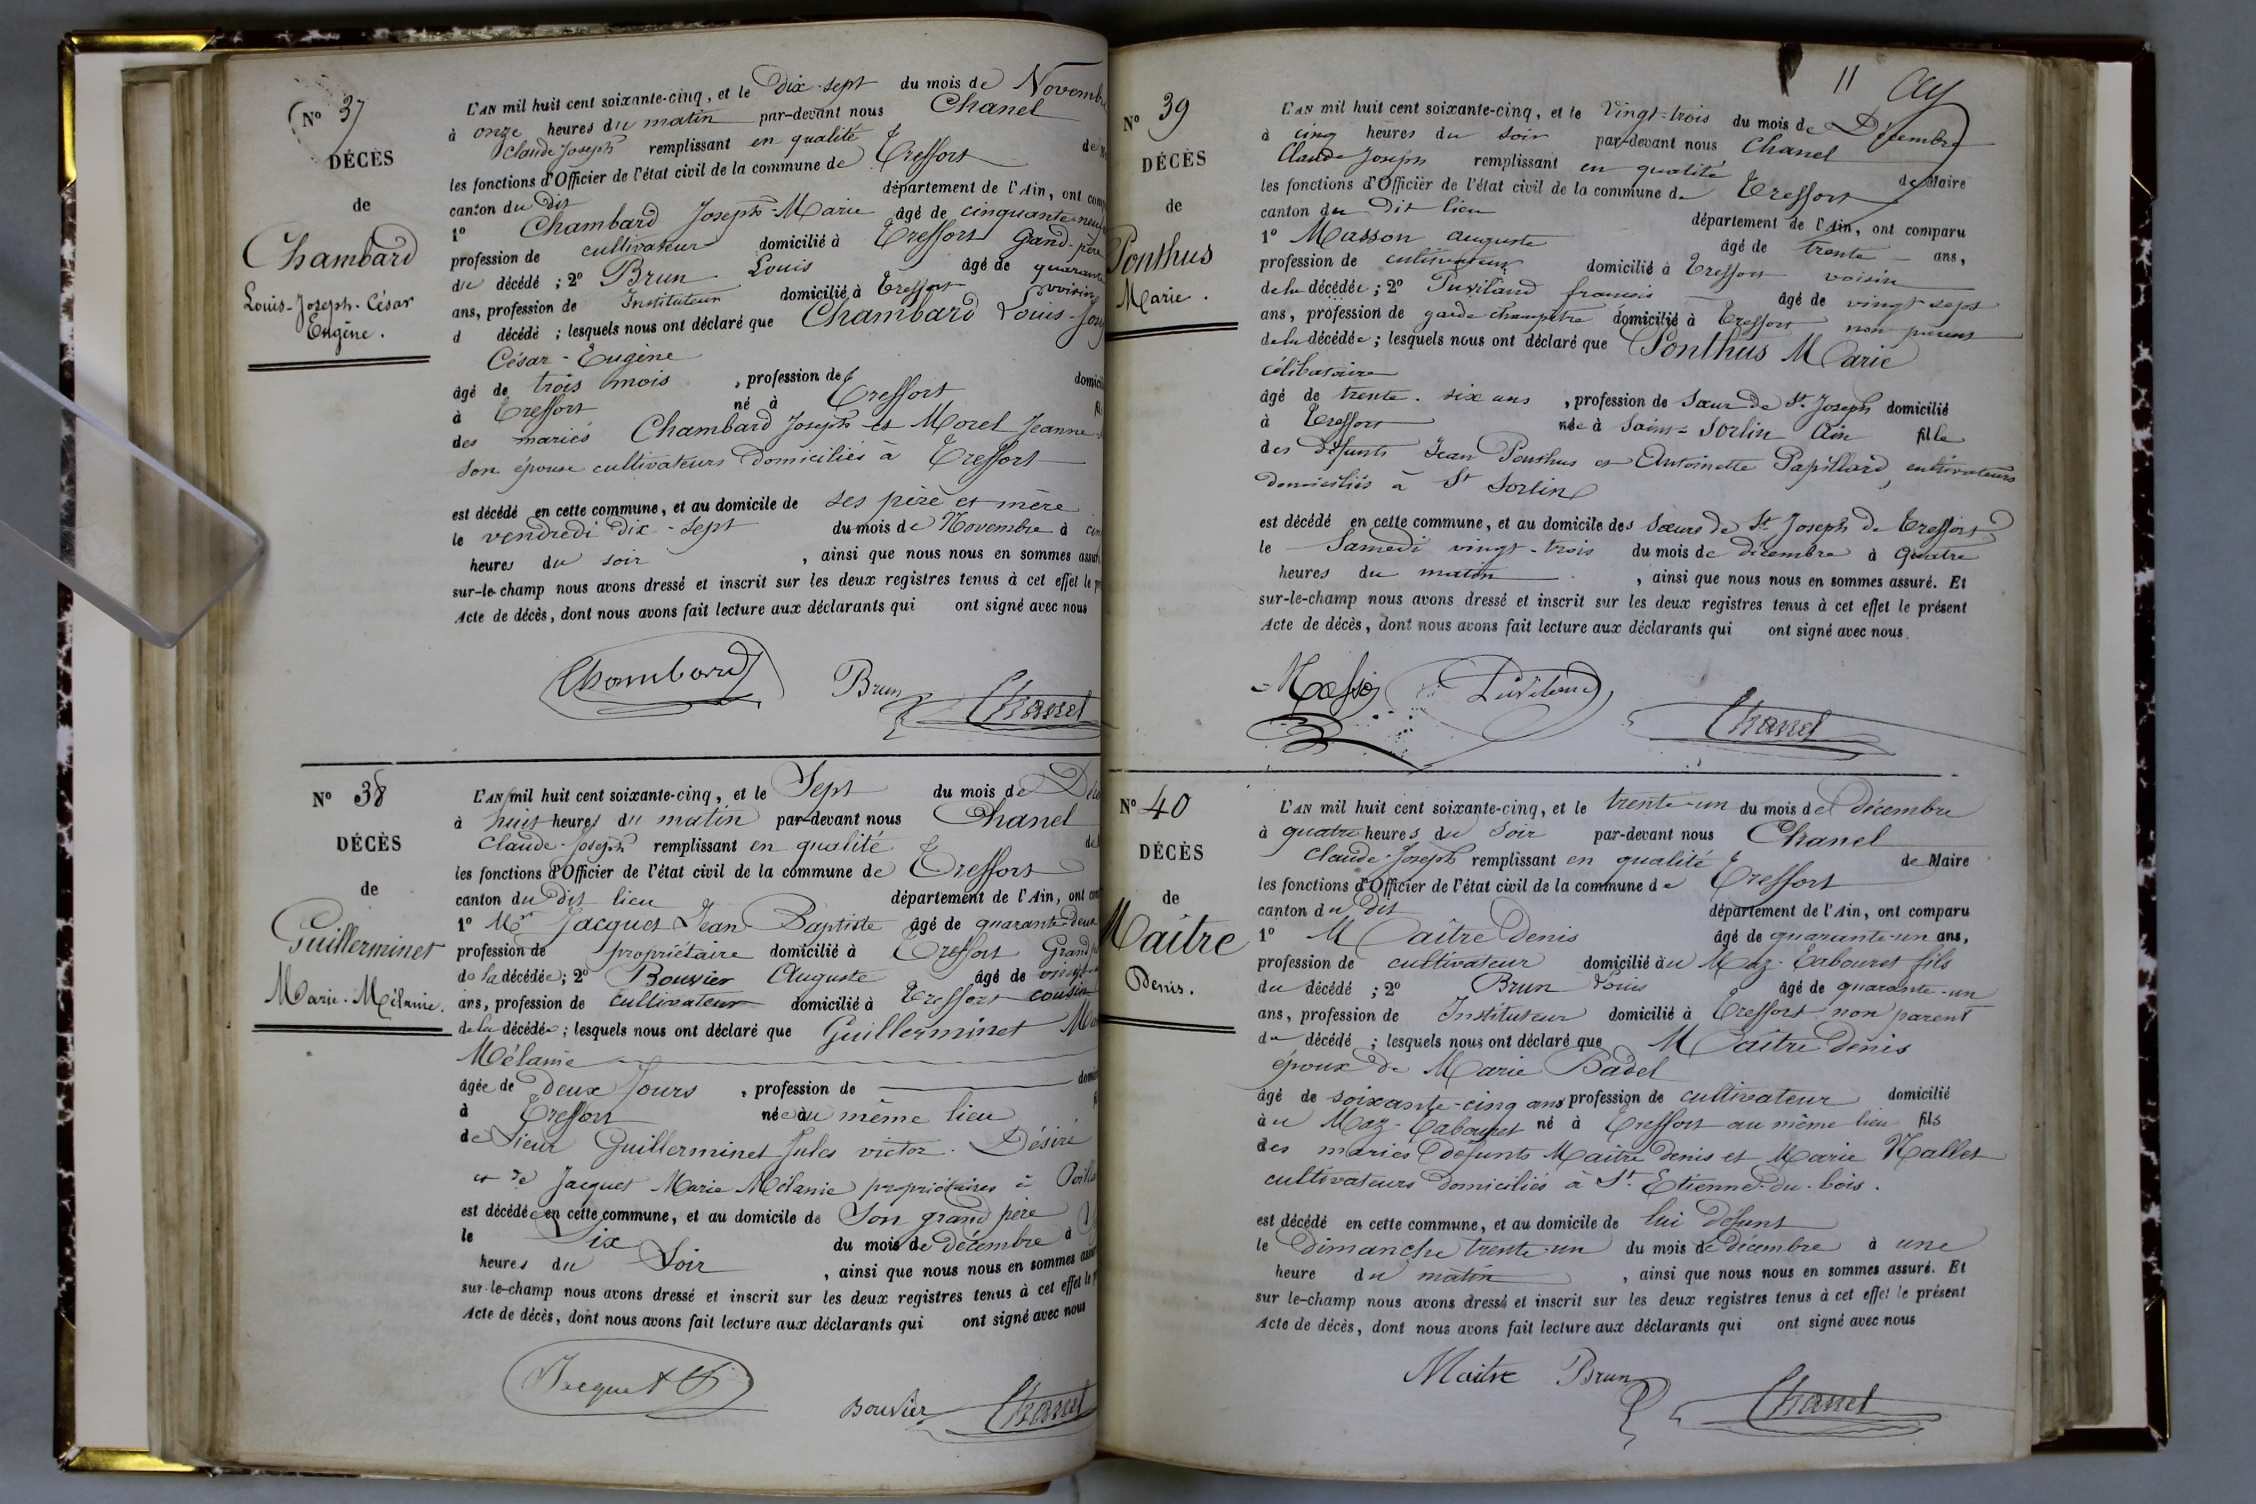 Nº 37
DÉCÈS
de
Chambard
Louis-Joseph-César
Eugène.
L'AN mil huit cent soixante-cinq, et le Dix-sept du mois de Novembre
à onze heures du matin par-devant nous Chanel
Claude Joseph remplissant en qualité de
les fonctions d'Officier de l'état civil de la commune de Treffort
canton du dit département de l'Ain, ont
1º Chambard Joseph-Marie âgé de cinquante-neuf
profession de cultivateur domicilié à Treffort Gand-père
du décédé ; 2º Brun Louis âgé de quarante
ans, profession de Instituteur domicilié à Treffort voisin
d décédé ; lesquels nous ont déclaré que Chambard Louis-
César-Eugène
âgé de trois mois , profession de
à Treffort né à Treffort
des mariés Chambard Joseph et Morel Jeanne
son épouse cultivateurs domiciliés à Treffort
est décédé en cette commune, et au domicile de ses père et mère
le vendredi Dix-sept du mois de Novembre à
heures du soir , ainsi que nous nous en sommes
sur-le-champ nous avons dressé et inscrit sur les deux registres tenus à cet effet le
Acte de décès, dont nous avons fait lecture aux déclarants qui ont signé avec nous
Chambard Brun Chanel
Nº 38
DÉCÈS
de
Guillerminet
Marie-Mélanie.
L'AN mil huit cent soixante-cinq, et le Sept du mois de
à huit heures du matin par-devant nous Chanel
Claude-Joseph remplissant en qualité
les fonctions d'Officier de l'état civil de la commune de Treffort
canton du dit lieu département de l'Ain, ont
1º Mr Jacquet Jean Baptiste âgé de quarante-deux
profession de propriétaire domicilié à Treffort
de la décédée; 2º Bouvier Auguste âgé de
ans, profession de cultivateur domicilié à Treffort cousin
de la décédée ; lesquels nous ont déclaré que Guillerminet
Mélanie
âgée de deux Jours , profession de
à Treffort née au même lieu
de Sieur Guillerminet Jules victor-Désiré
et de Jacquet Marie Mélanie propriétaires à
est décédée en cette commune, et au domicile de Son grand père
le Six du mois de décembre à
heures du Soir , ainsi que nous nous en sommes
sur-le-champ nous avons dressé et inscrit sur les deux registres tenus à cet effet le
Acte de décès, dont nous avons fait lecture aux déclarants qui ont signé avec nous
Jacquet Bouvier Chanel
11
Nº 39
DÉCÈS
de
Ponthus
Marie.
L'AN mil huit cent soixante-cinq, et le Vingt-trois du mois de Décembre
à cinq heures du soir par-devant nous Chanel
Claude Joseph remplissant en qualité de Maire
les fonctions d'Officier de l'état civil de la commune de Treffort
canton du Dit lieu département de l'Ain, ont comparu
1º Masson auguste âgé de trente ans,
profession de cultivateur domicilié à Treffort voisin
de la décédée ; 2º Puviland françois âgé de vingt-sept
ans, profession de garde champêtre domicilié à Treffort non parent
de la décédée ; lesquels nous ont déclaré que Ponthus Marie
célibataire
âgé de trente-six ans , profession de Sœur de St Joseph domicilié
à Treffort née à Saint-Sorlin Ain fille
des défunts Jean Ponthus et Antoinette Papillard, cultivateurs
domiciliés à St Sorlin
est décédé en cette commune, et au domicile des Sœurs de St Joseph de Treffort
le Samedi vingt-trois du mois de décembre à Quatre
heures du matin , ainsi que nous nous en sommes assuré. Et
sur-le-champ nous avons dressé et inscrit sur les deux registres tenus à cet effet le présent
Acte de décès, dont nous avons fait lecture aux déclarants qui ont signé avec nous.
Masson Puviland Chanel
Nº 40
DÉCÈS
de
Maître
Denis.
L'AN mil huit cent soixante-cinq, et le trente-un du mois de décembre
à quatre heures du Soir par-devant nous Chanel
Claude-Joseph remplissant en qualité de Maire
les fonctions d'Officier de l'état civil de la commune de Treffort
canton du dit département de l'Ain, ont comparu
1º Maître Denis âgé de quarante-un ans,
profession de cultivateur domicilié au Maz-Tabouret fils
du décédé ; 2º Brun Louis âgé de quarante-un
ans, profession de Instituteur domicilié à Treffort non parent
du décédé ; lesquels nous ont déclaré que Maître Denis
époux de Marie Badel
âgé de soixante-cinq ans profession de cultivateur domicilié
au Maz-Tabouret né à Treffort au même lieu fils
des mariés défunts Maître Denis et Marie Nallet
cultivateurs domiciliés à St. Etienne-du-bois.
est décédé en cette commune, et au domicile de lui défunt
le Dimanche trente-un du mois de décembre à une
heure du matin , ainsi que nous nous en sommes assuré. Et
sur le-champ nous avons dressé et inscrit sur les deux registres tenus à cet effet le présent
Acte de décès, dont nous avons fait lecture aux déclarants qui ont signé avec nous
Maitre Brun Chanel